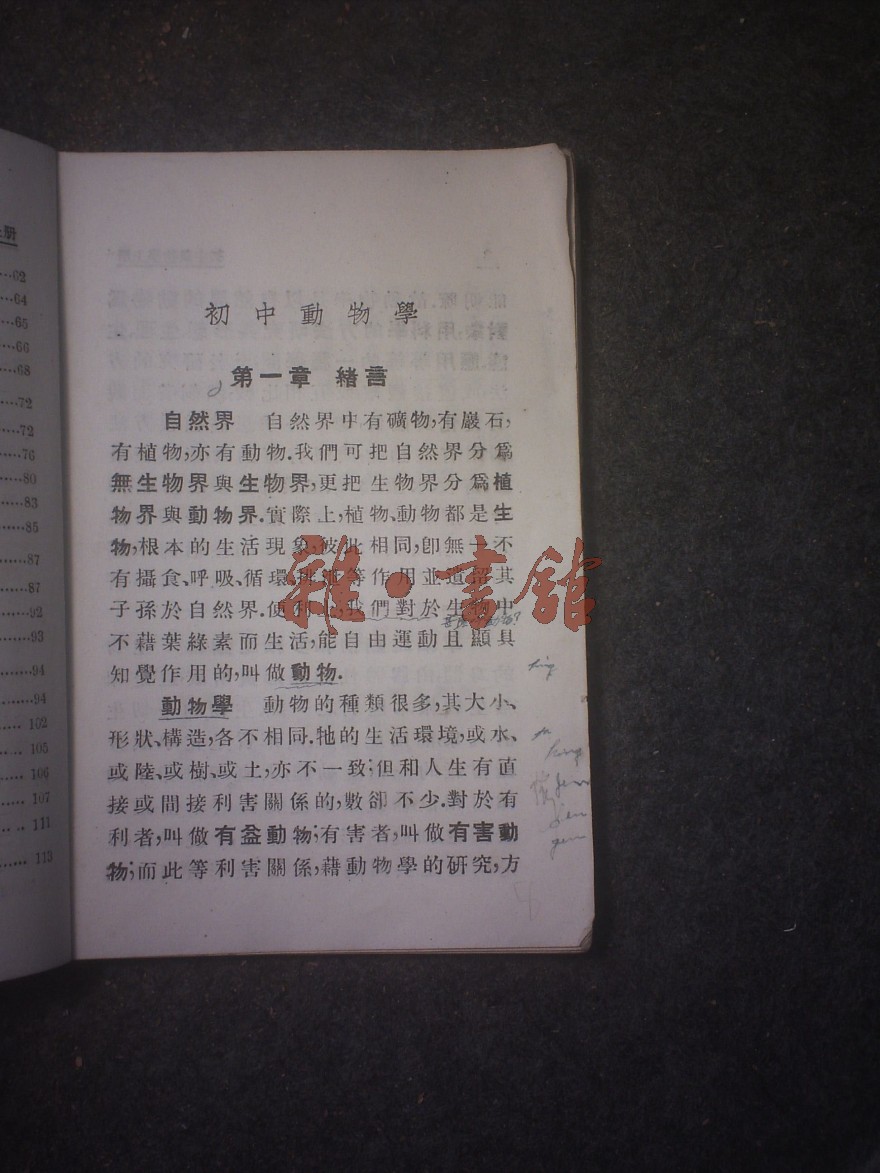 上册
62
64
65
66
68
72
72
76
80
83
85
87
87
92
93
94
94
102
105
106
107
111
113
初中動物學
第一章 緒言
自然界 自然界中有礦物,有巖石,
有植物,亦有動物.我們可把自然界分爲
無生物界與生物界,更把生物界分爲植
物界與動物界.實際上,植物、動物都是生
物,根本的生活現象,彼此相同,卽無一不
有攝食、呼吸、循環、排泄等作用並遺留其
子孫於自然界.便利上,我們對於生物中
不藉葉綠素而生活,能自由運動且顯具
知覺作用的,叫做動物.
動物學 動物的種類很多,其大小、
形狀、構造,各不相同.牠的生活環境,或水、
或陸、或樹、或土,亦不一致;但和人生有直
接或間接利害關係的,數卻不少.對於有
利者,叫做有益動物;有害者,叫做有害動
物;而此等利害關係,藉動物學的研究,方
雜·書館